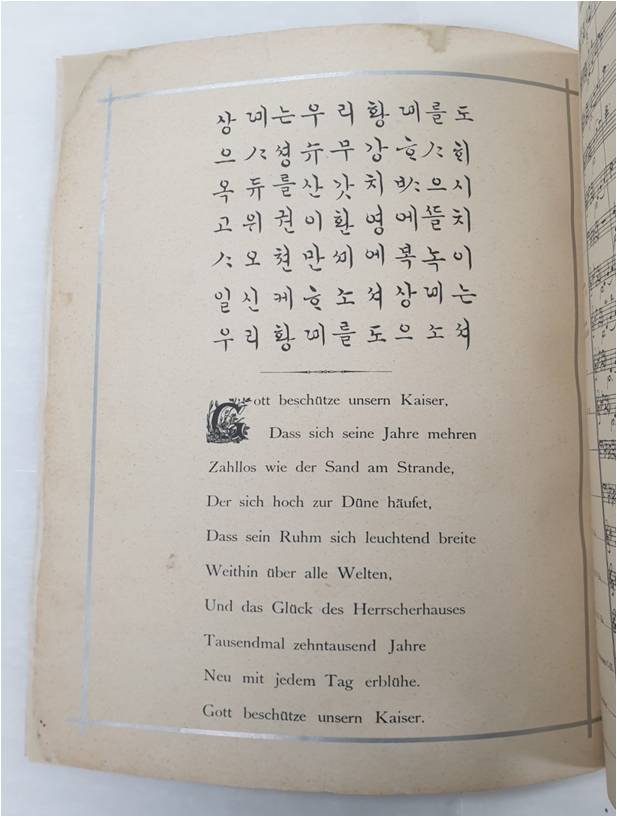 상뎨는우리황뎨를도
으ᄉᆞ셩슈무강ᄒᆞᄉᆞᄒᆡ
옥듀를산갓치ᄡᆞ으시
고위권이환영에ᄯᅳᆯ치
ᄉᆞ오쳔만셰에복녹이
일신케ᄒᆞ소셔상뎨는
우리황뎨를도으소셔
Gott beschütze unsern Kaiser,
Dass sich seine Jahre mehren
Zahllos wie der Sand am Strande,
Der sich hoch zur Düne häufet,
Dass sein Ruhm sich leuchtend breite
Weithin über alle Welten,
Und das Glück des Herrscherhauses
Tausendmal zehntausend Jahre
Neu mit jedem Tag erblühe.
Gott beschütze unsern Kaiser.